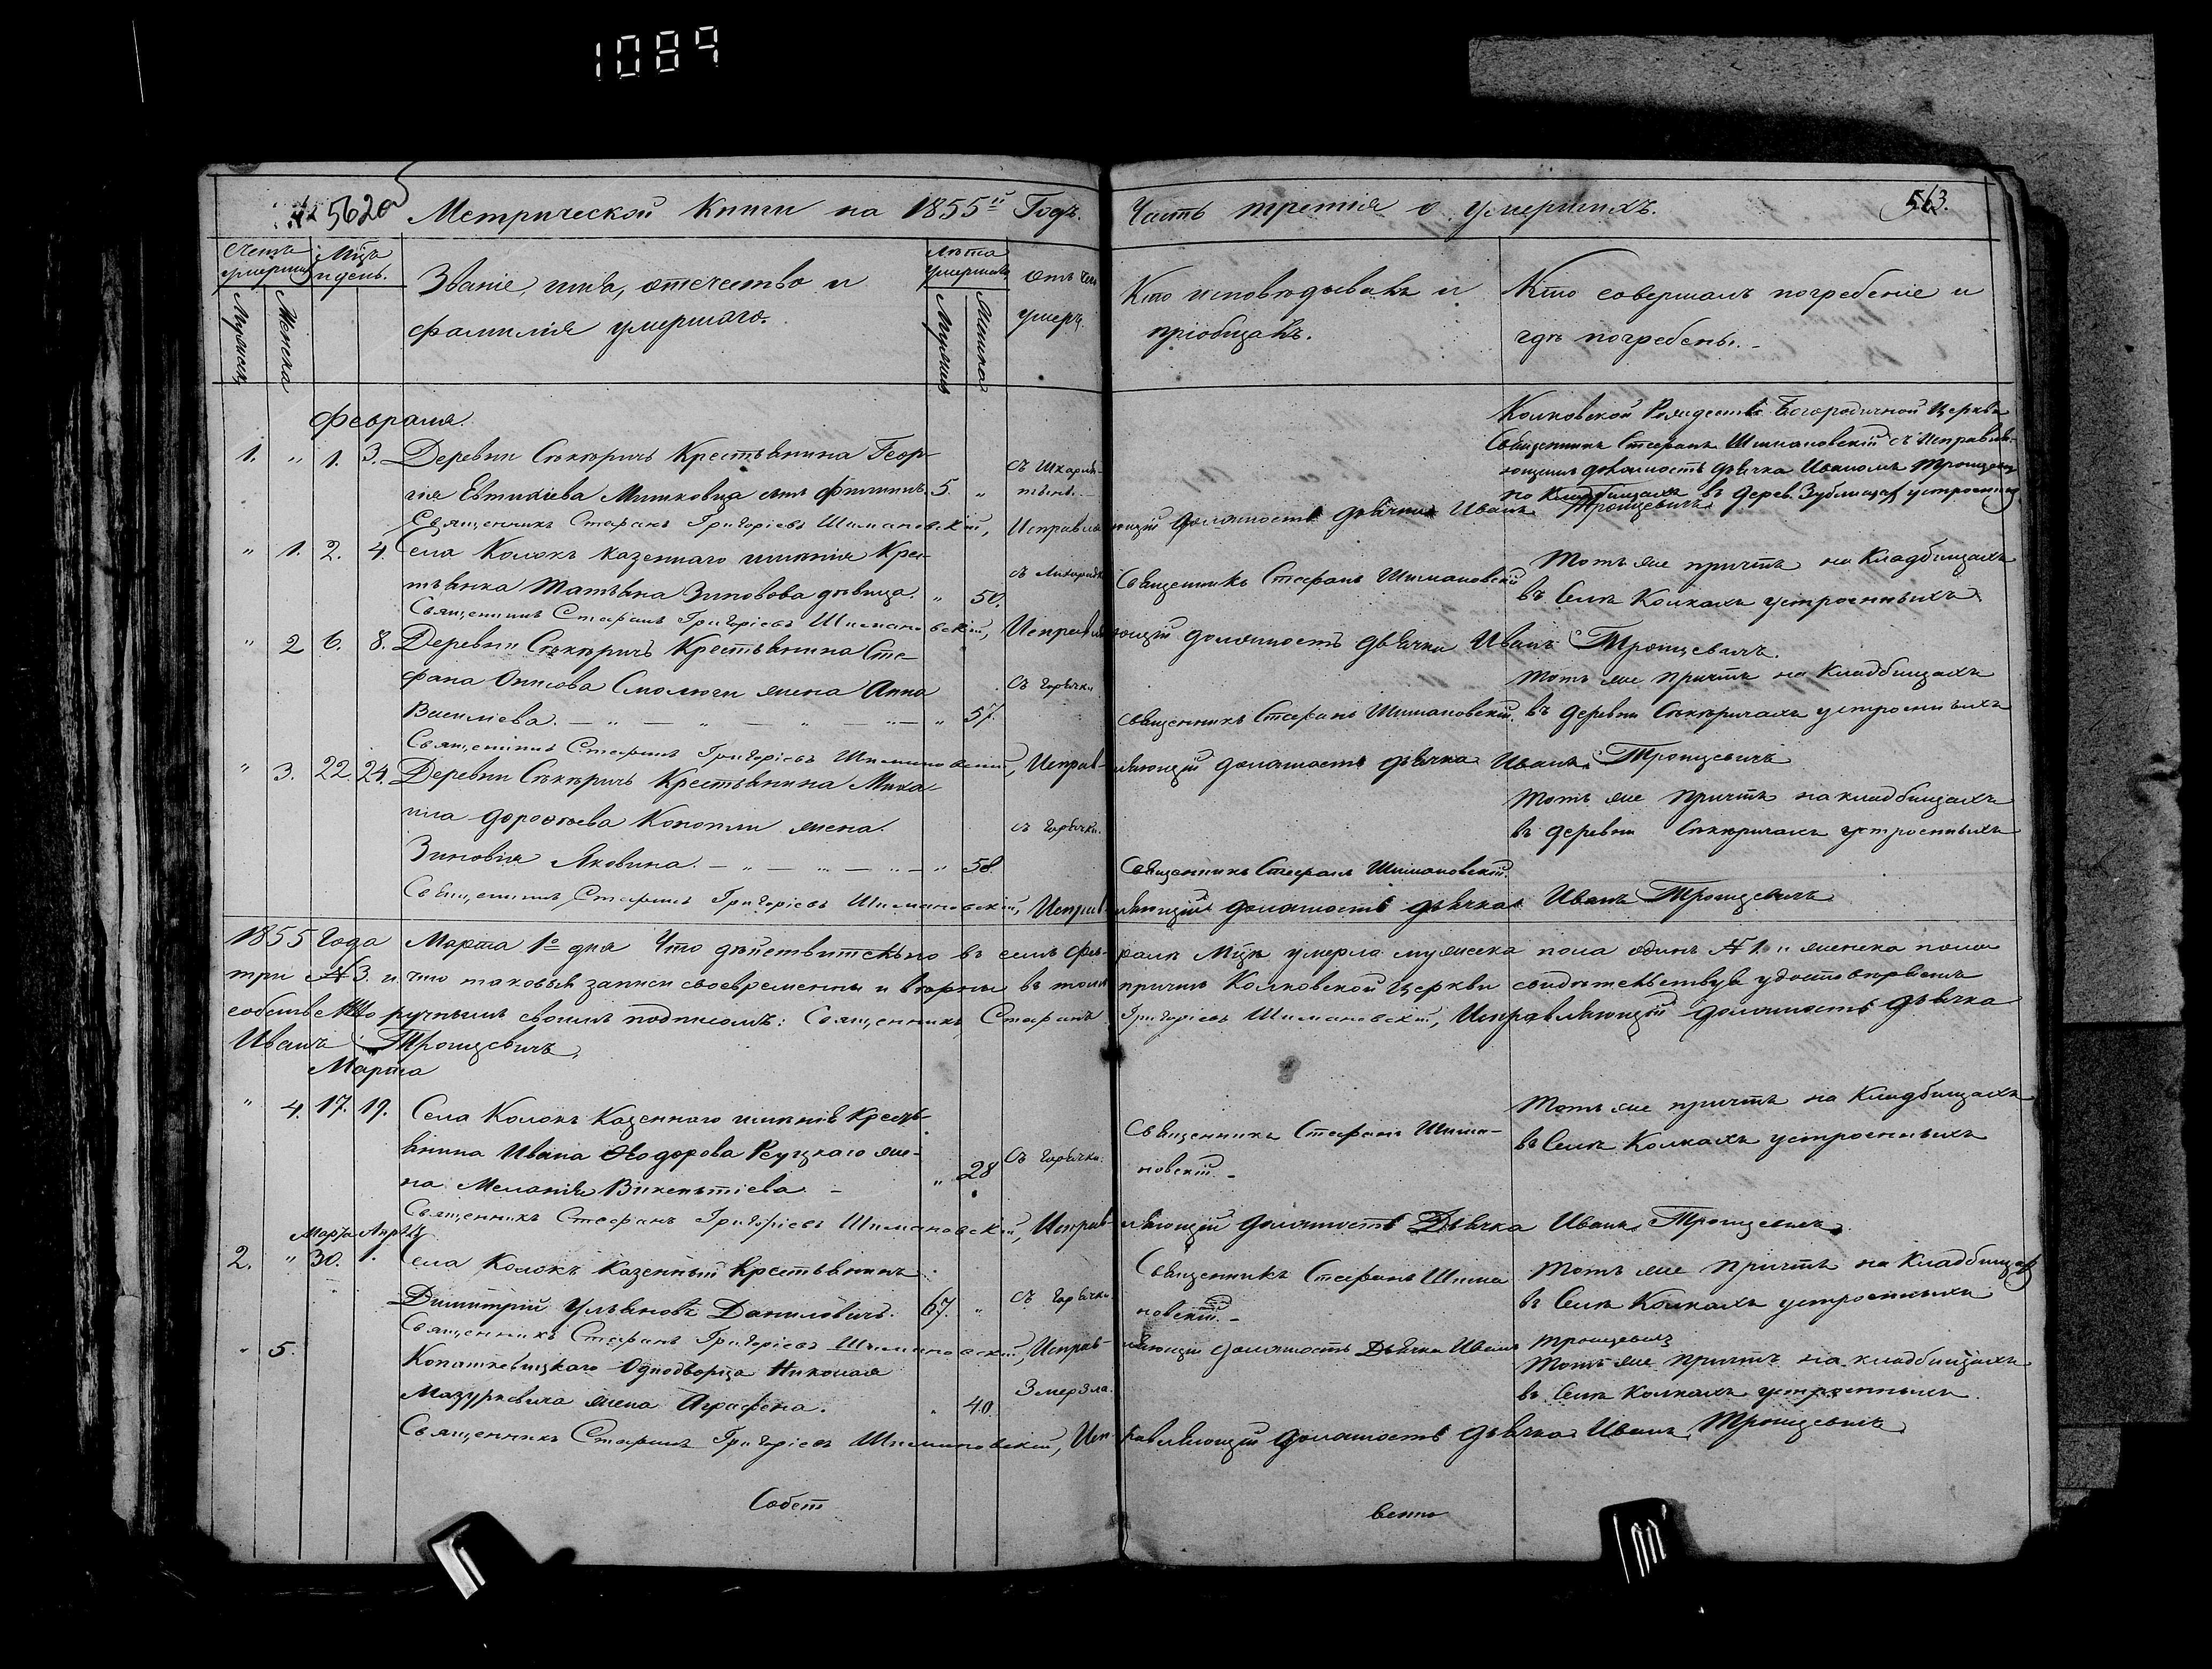 1089
562об
Метрической Книги на 1855й Годъ.
Часть третія о умершихъ.
563.
Счетъ умершихъ
Мужеска
Женска
Мцъ и день.
Званіе, имя, отечество и
фамилія умершаго.
Лѣта умершаго
Мужеска
Женска
отъ чего
умеръ.
Кто исповѣдывалъ и
пріобщалъ.
Кто совершалъ погребеніе и
гдѣ погребены.
Февраля.
1. " 1. 3. Деревни Сѣкѣричъ Крестьянина Геор-
гія Евтихіева сынъ Филиппъ. 5. "
Колковской Рождество Богородичной Церкви
Священникъ Стефанъ Шимановскій съ Исправля-
ющимъ должность дьячка Иваномъ Трощевич
на Кладбищахъ въ дерев. Зубищах устроенных
Священникъ Стефанъ Григоріевъ Шимановскій, Исправляющій должность дьячка Иванъ Трощевичъ
" 1. 2. 4. Села Колокъ казеннаго имѣнія Крес-
тьянка Татьяна Зиновова дѣвица. " 50.
Священникъ Стефанъ Шимановскій
Тотъ же причтъ на Кладбищахъ
въ Селѣ Колкахъ устроенныхъ
Священникъ Стефанъ Григоріевъ Шимановскій, Исправляющій должность дьячка Иванъ Трощевичъ.
" 2 6. 8. Деревни Сѣкѣричъ Крестьянина Сте-
фана жена Анна
Василіева. — " — " — " — " 57.
съ горячки
Священникъ Стефанъ Шимановскій.
Тотъ же причтъ на Кладбищахъ
въ деревни Сѣкѣричахъ устроенныхъ
Священникъ Стефанъ Григоріевъ Шимановскій, Исправляющій должность дьячка Иванъ Трощевичъ
" 3. 22. 24. Деревни Сѣкѣричъ Крестьянина Миха-
ила Дорофѣева Конопли жена
Зиновія Яковина. — " — " — " — " 58.
съ горячки.
Священникъ Стефанъ Шимановскій.
Тотъ же причтъ на кладбищахъ
въ деревни Сѣкѣричахъ устроенныхъ
Священникъ Стефанъ Григоріевъ Шимановскій, Исправляющій должность дьячка Иванъ Трощевичъ
1855 Года Марта 1го дня Что дѣйствительно въ семъ февралѣ Мцѣ умерло мужеска пола одинъ № 1. и женска пола
три № 3. и что таковыя записи своевременны и вѣрны въ томъ причтъ Колковской Церкви свидѣтельствуя удостовѣряемъ
собственноручнымъ своимъ подписомъ: Священникъ Стефанъ Григоріевъ Шимановскій, Исправляющій должность дьячка
Иванъ Трощевичъ.
Марта
" 4. 17. 19. Села Колокъ Казеннаго имѣнія Кресть-
янина Ивана Ѳодорова Реуцкаго же-
на Меланія Викентіева — " 28
съ горячки.
Священникъ Стефанъ Шима-
новскій. —
Тотъ же причтъ на Кладбищахъ
въ Селѣ Колкахъ устроенныхъ
Священникъ Стефанъ Григоріевъ Шимановскій, Исправляющій должность Дьячка Иванъ Трощевичъ
Марта Апрѣл
2. " 30. 1. Села Колокъ Казенный Крестьянинъ
Димитрій Ульяновъ Даниловичъ. 67. "
съ горячки
Священникъ Стефанъ Шима
новскій. —
Тотъ же Причтъ на Кладбищах
въ Селѣ Колкахъ устроенныхъ
Священникъ Стефанъ Григоріевъ Шимановскій, Исправляющій должность Дьячка Иванъ Трощевичъ
" 5. Копаткевицкаго Однодворца Николая
Мазуркевича жена Аграфена. " 40.
Змерзла.
Тотъ же Причтъ на кладбищахъ
въ Селѣ Колкахъ устроенныхъ.
Священникъ Стефанъ Григоріевъ Шимановскій, Исправляющій должность дьячка Иванъ Трощевичъ
Собст венно